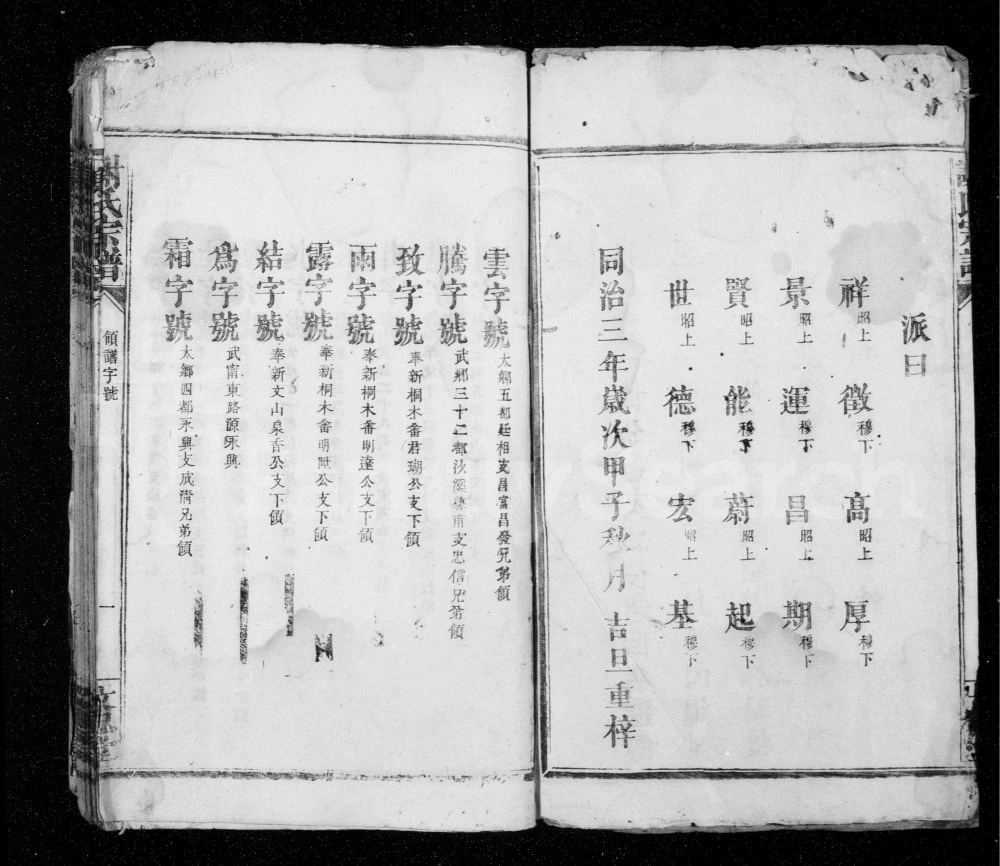 派曰
祥昭上 徵穆下 高昭上 厚穆下
景昭上 運穆下 昌昭上 期穆下
賢昭上 能穆下 蔚昭上 起穆下
世昭上 德穆下 宏昭上 基穆下
同治三年歲次甲子秋月吉旦重梓
雲字號 太鄉五都廷相支昌富昌發兄弟領
騰字號 武鄉三十二都沙溪 甫支忠信兄弟領
致字號 奉新桐木畬君瑚公支下領
雨字號 奉新桐木畬明達公支下領
露字號 奉新桐木畬明 公支下領
結字號 奉新文山泉香公支下領
為字號 武甯東路源永興
霜字號 太鄉四都永興支成清兄弟領
謝氏宗譜
領譜字號
一